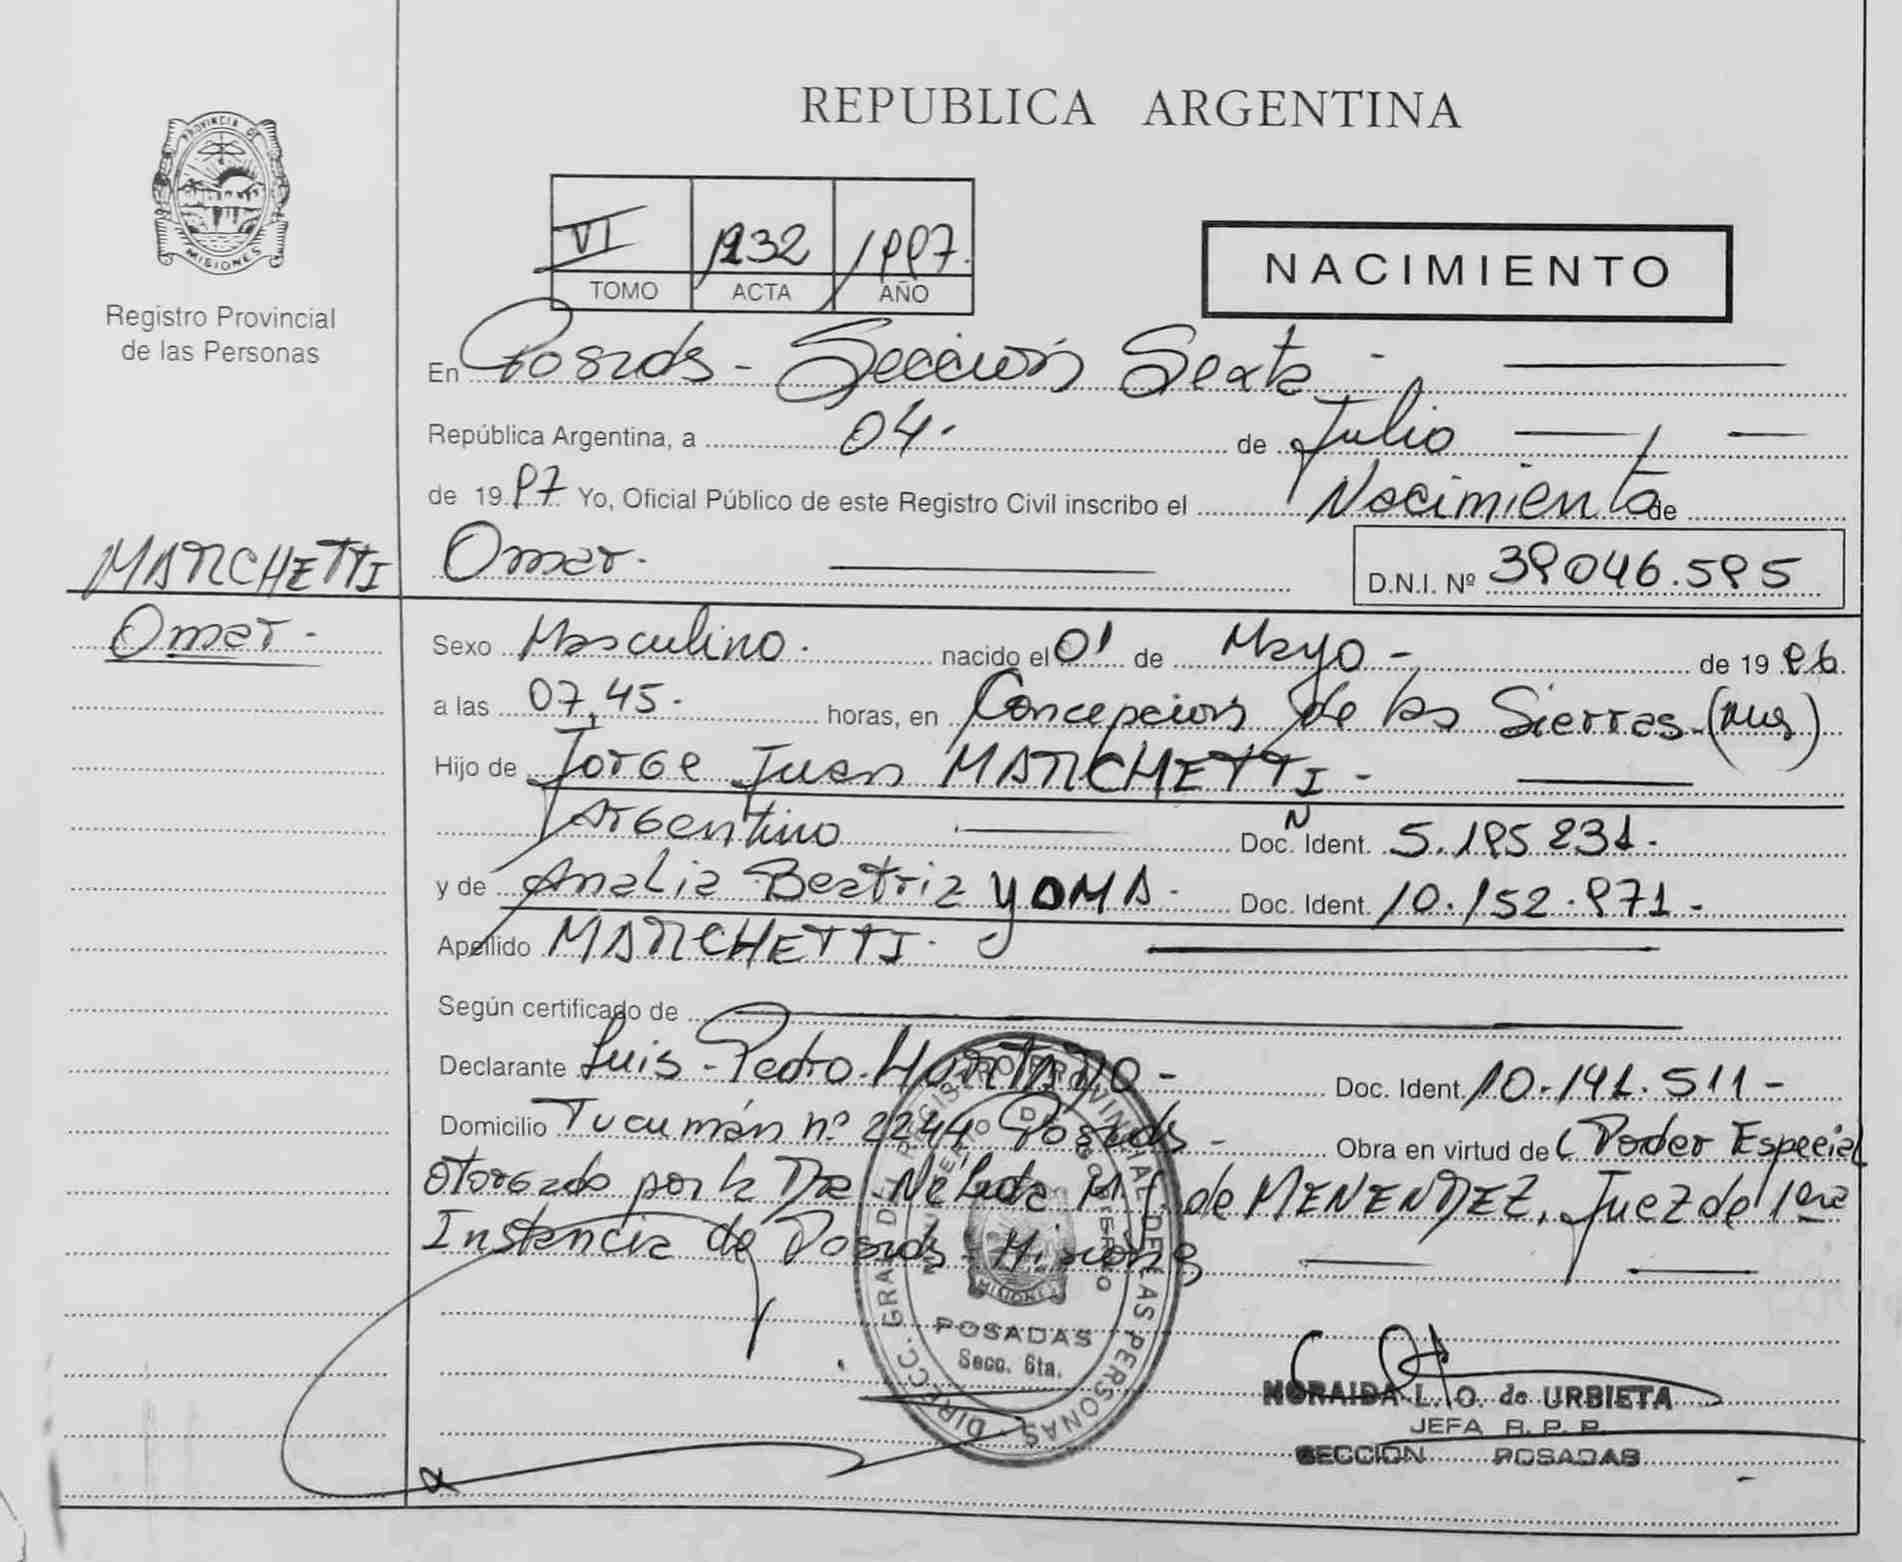 REPUBLICA ARGENTINA
PROVINCIA DE
MISIONES
Registro Provincial
de las Personas
VI 1232 1997.
TOMO ACTA AÑO
NACIMIENTO
En Posadas - Sección Sexta -
República Argentina, a 04. de Julio
de 1997 Yo, Oficial Público de este Registro Civil inscribo el Nacimiento de
MARCHETTI Omar. D.N.I. Nº 39046.595
Omar.
Sexo Masculino. nacido el 01 de Mayo - de 1996.
a las 07,45. horas, en Concepcion de las Sierras (Mns)
Hijo de Jorge Juan MARCHETTI -
Argentino Doc. Ident. 5.195 231.
y de Analia Beatriz YOMA. Doc. Ident. 10.152.971.
Apellido MARCHETTI.
Según certificado de
Declarante Luis Pedro HURTADO - Doc. Ident. 10.141.511 -
Domicilio Tucumán nº 2244 Posadas - Obra en virtud de Poder Especial
otorgado por la Dra Nélida M. de MENENDEZ, Juez de 1era
Instancia de Posadas Misiones
DIRECC. GRAL DEL REGISTRO PROVINCIAL DE LAS PERSONAS
MISIONES
POSADAS
Secc. 6ta.
NORAIDA L. O. de URBIETA
JEFA R. P. P.
SECCION POSADAS